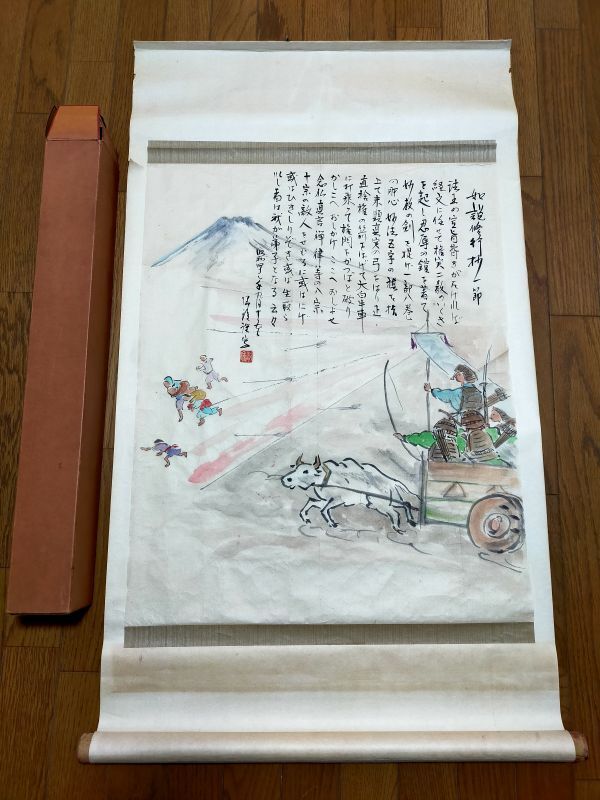 如説修行抄一節
法王の宣旨背きがたければ
経文に任せて権実二教のいくさ
を起し忍辱の鎧を着て
妙教の剣を提げ一部八巻
の肝心妙法五字の旗を指
上て未顕真実の弓をはり正
直捨権の箭をはげて大白牛車
に打乗って権門をかっぱと破り
かしこへおしかけここへおしよせ
念仏真言禅律等の八宗
十宗の敵人をせむるに或はにげ
或はひきしりぞき或は生取ら
れし者は我が弟子となる 云々